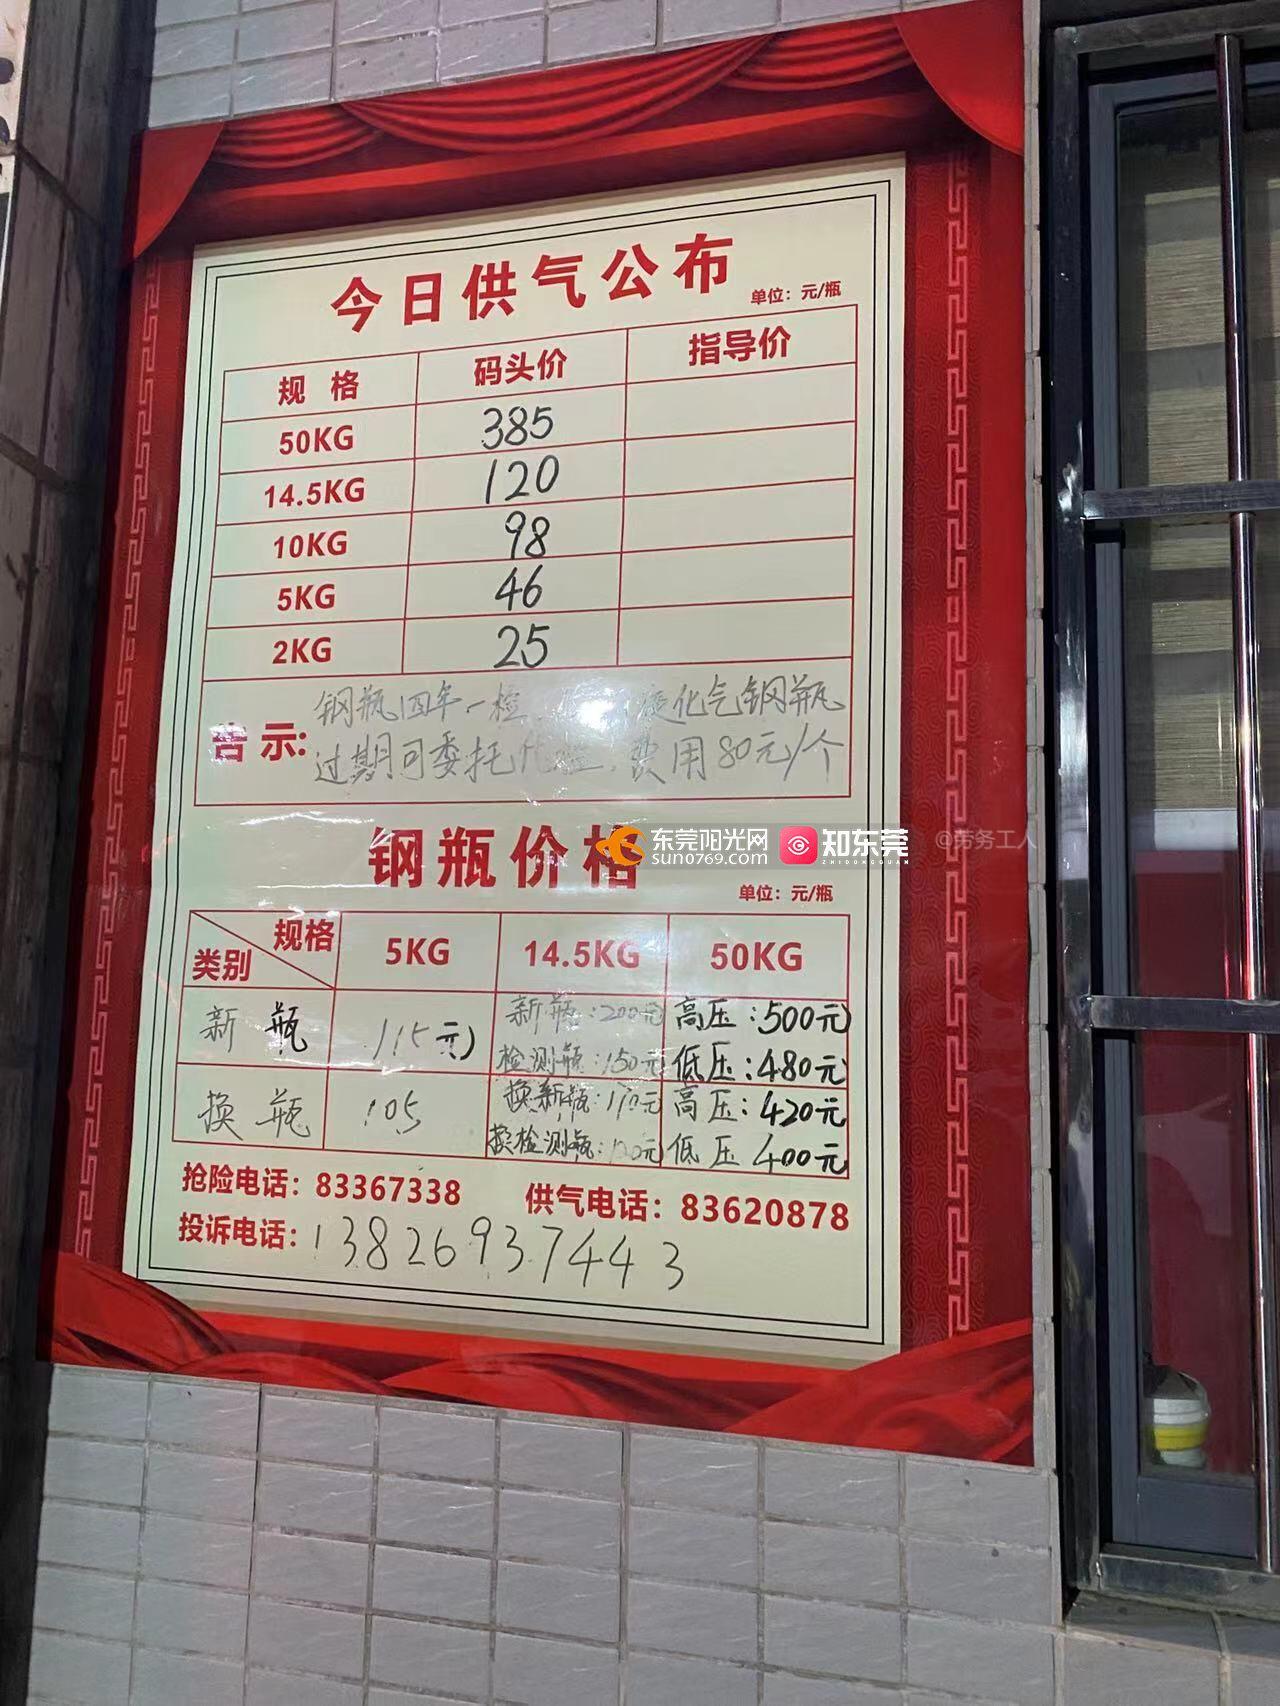 今日供气公布
单位：元/瓶
规 格 码头价 指导价
50KG 385
14.5KG 120
10KG 98
5KG 46
2KG 25
告示:
钢瓶四年一检 液化气钢瓶
过期可委托代检，费用80元/个
钢瓶价格
东莞阳光网
sun0769.com
知东莞
ZHIDONGGUAN
@劳务工人
单位：元/瓶
规格 类别 5KG 14.5KG 50KG
新瓶 115元 新瓶：200元 高压：500元
检测瓶：150元 低压：480元
换瓶 105 换新瓶： 高压：420元
换检测瓶： 低压 400元
抢险电话：83367338 供气电话：83620878
投诉电话：13826937443